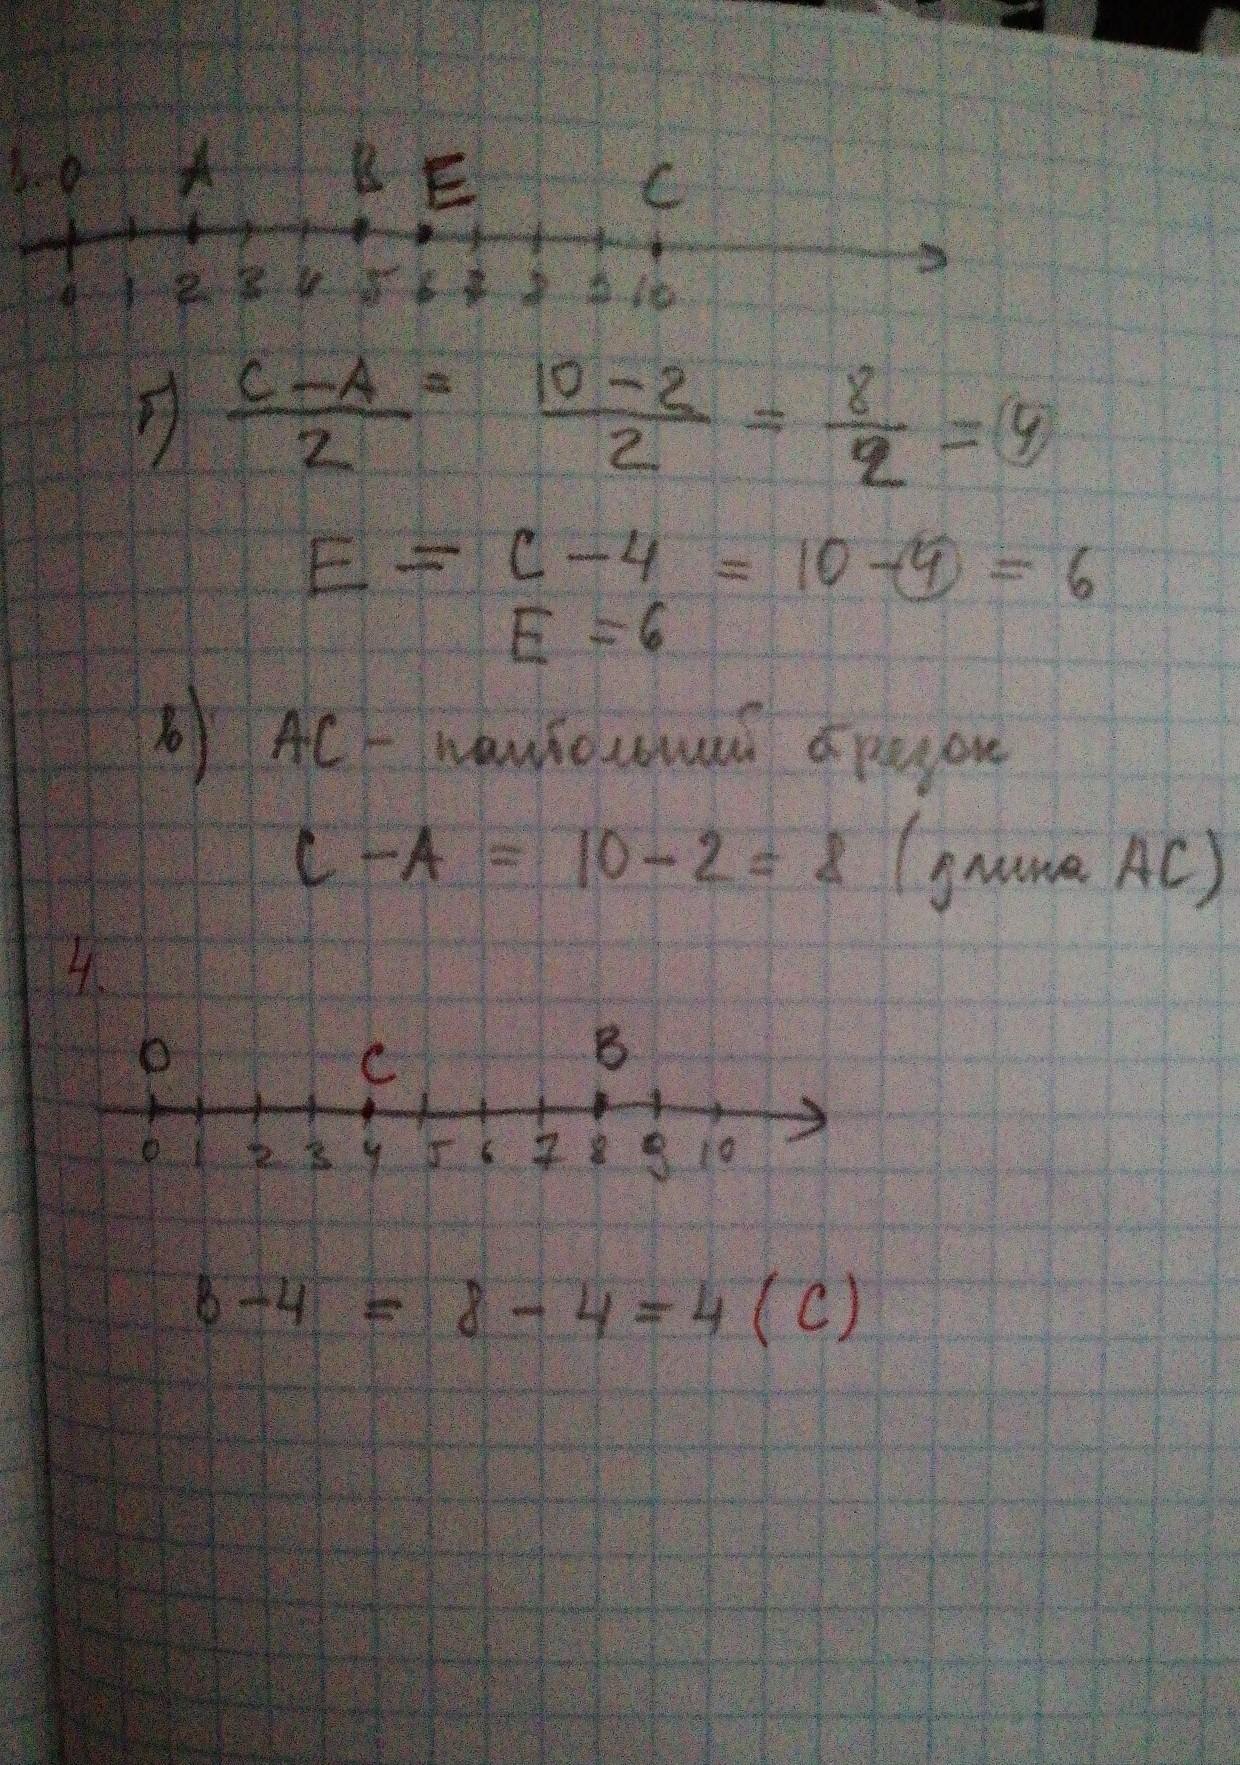 3. O A B E C
0 1 2 3 4 5 6 7 8 9 10
б) C-A/2 = 10-2/2 = 8/2 = 4
E = C-4 = 10-4 = 6
E = 6
в) AC - наибольший отрезок
C-A = 10-2 = 8 (длина AC)
4.
O C B
0 1 2 3 4 5 6 7 8 9 10
B-4 = 8-4=4 (C)